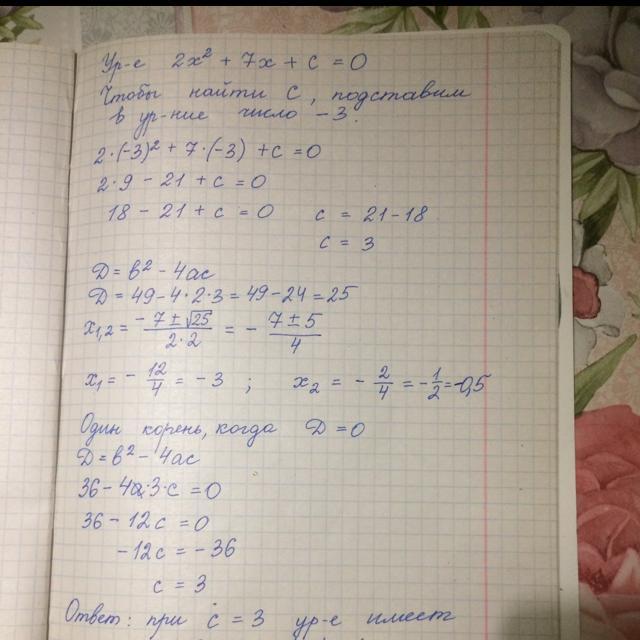 Ур-е 2x² + 7x + c = 0
Чтобы найти c, подставим
в ур-ние число -3.
2·(-3)² + 7·(-3) + c = 0
2·9 - 21 + c = 0
18 - 21 + c = 0 c = 21-18
c = 3
D = b² - 4ac
D = 49 - 4·2·3 = 49 - 24 = 25
x₁,₂ = (-7 ± √25)/(2·2) = - (7 ± 5)/4
x₁ = - 12/4 = -3 ; x₂ = - 2/4 = - 1/2 = -0,5
Один корень, когда D = 0
D = b² - 4ac
36 - 4·3·c = 0
36 - 12c = 0
-12c = -36
c = 3
Ответ: при c = 3 ур-е имеет